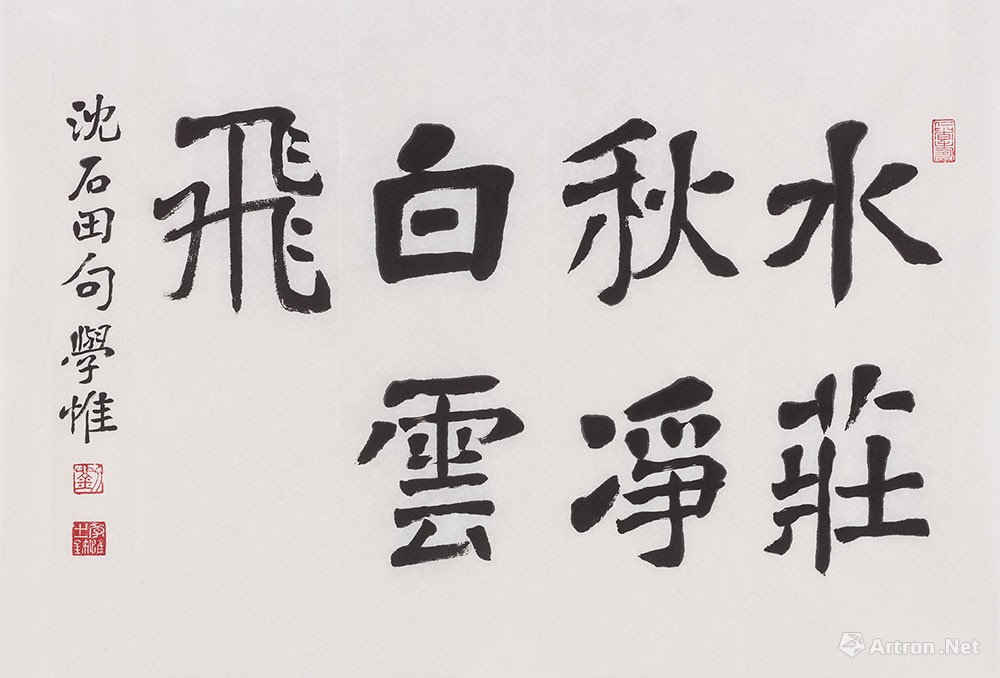 水莊
秋淨
白雲
飛
沈石田句學惟
Artron.Net